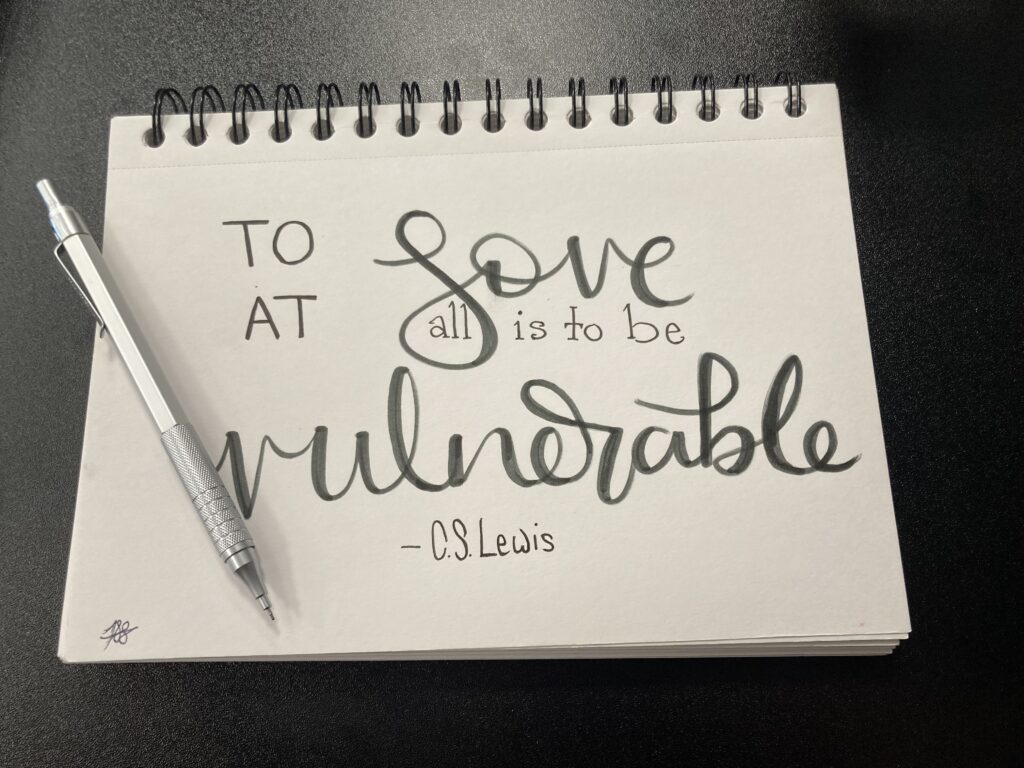 TO love
AT all is to be
vulnerable
- C.S. Lewis